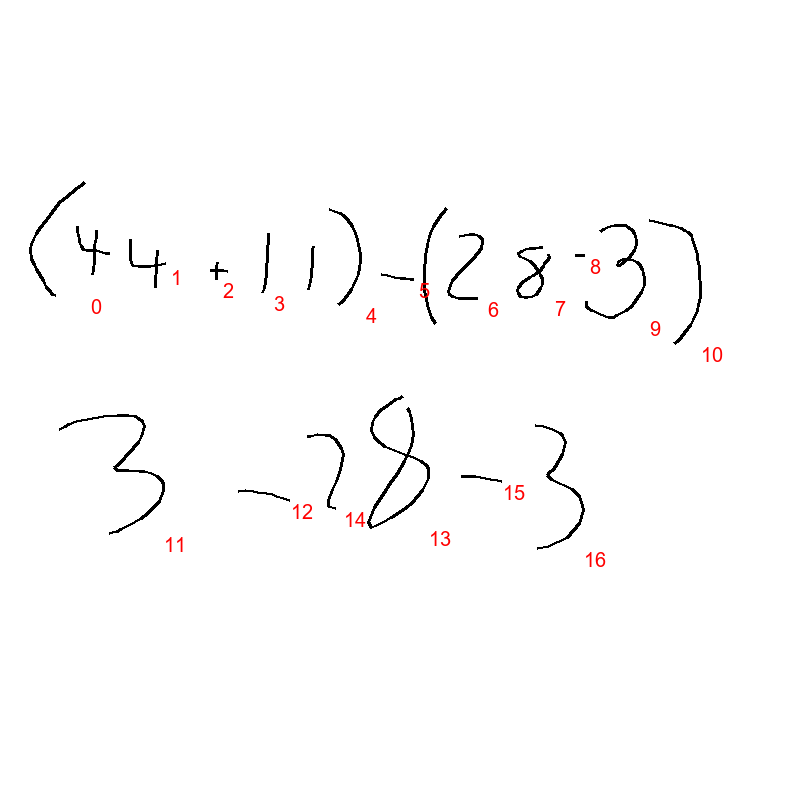 (44+11)-(28-3)
0 1 2 3 4 5 6 7 8 9 10
3-28-3
11 12 14 13 15 16